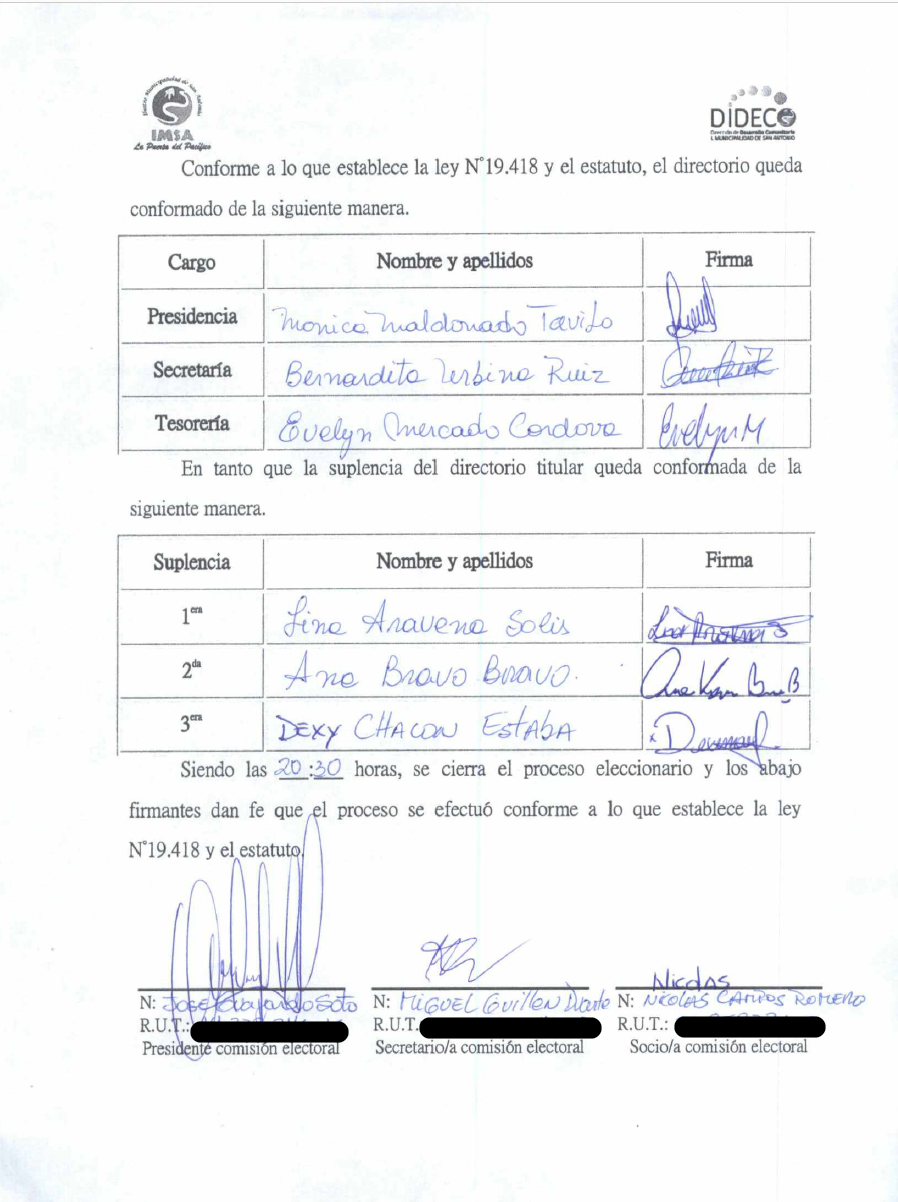 Ilustre Municipalidad de San Antonio
IMSA
La Puerta del Pacífico
DIDECO
Dirección de Desarrollo Comunitario
I. MUNICIPALIDAD DE SAN ANTONIO
Conforme a lo que establece la ley N°19.418 y el estatuto, el directorio queda
conformado de la siguiente manera.
Cargo Nombre y apellidos Firma
Presidencia Monica Maldonado Tavilo
Secretaría Bernardita Urbina Ruiz
Tesorería Evelyn Mercado Cordova Evelyn M
En tanto que la suplencia del directorio titular queda conformada de la
siguiente manera.
Suplencia Nombre y apellidos Firma
1era Lina Aravena Solis Lina Aravena S
2da Ana Bravo Bravo.
3era DEXY CHACON ESTABA
Siendo las 20:30 horas, se cierra el proceso eleccionario y los abajo
firmantes dan fe que el proceso se efectuó conforme a lo que establece la ley
N°19.418 y el estatuto.
Nicolas
N: José Soto N: MIGUEL Guillen N: NICOLAS ROMERO
R.U.T.: R.U.T. R.U.T.:
Presidente comisión electoral Secretario/a comisión electoral Socio/a comisión electoral